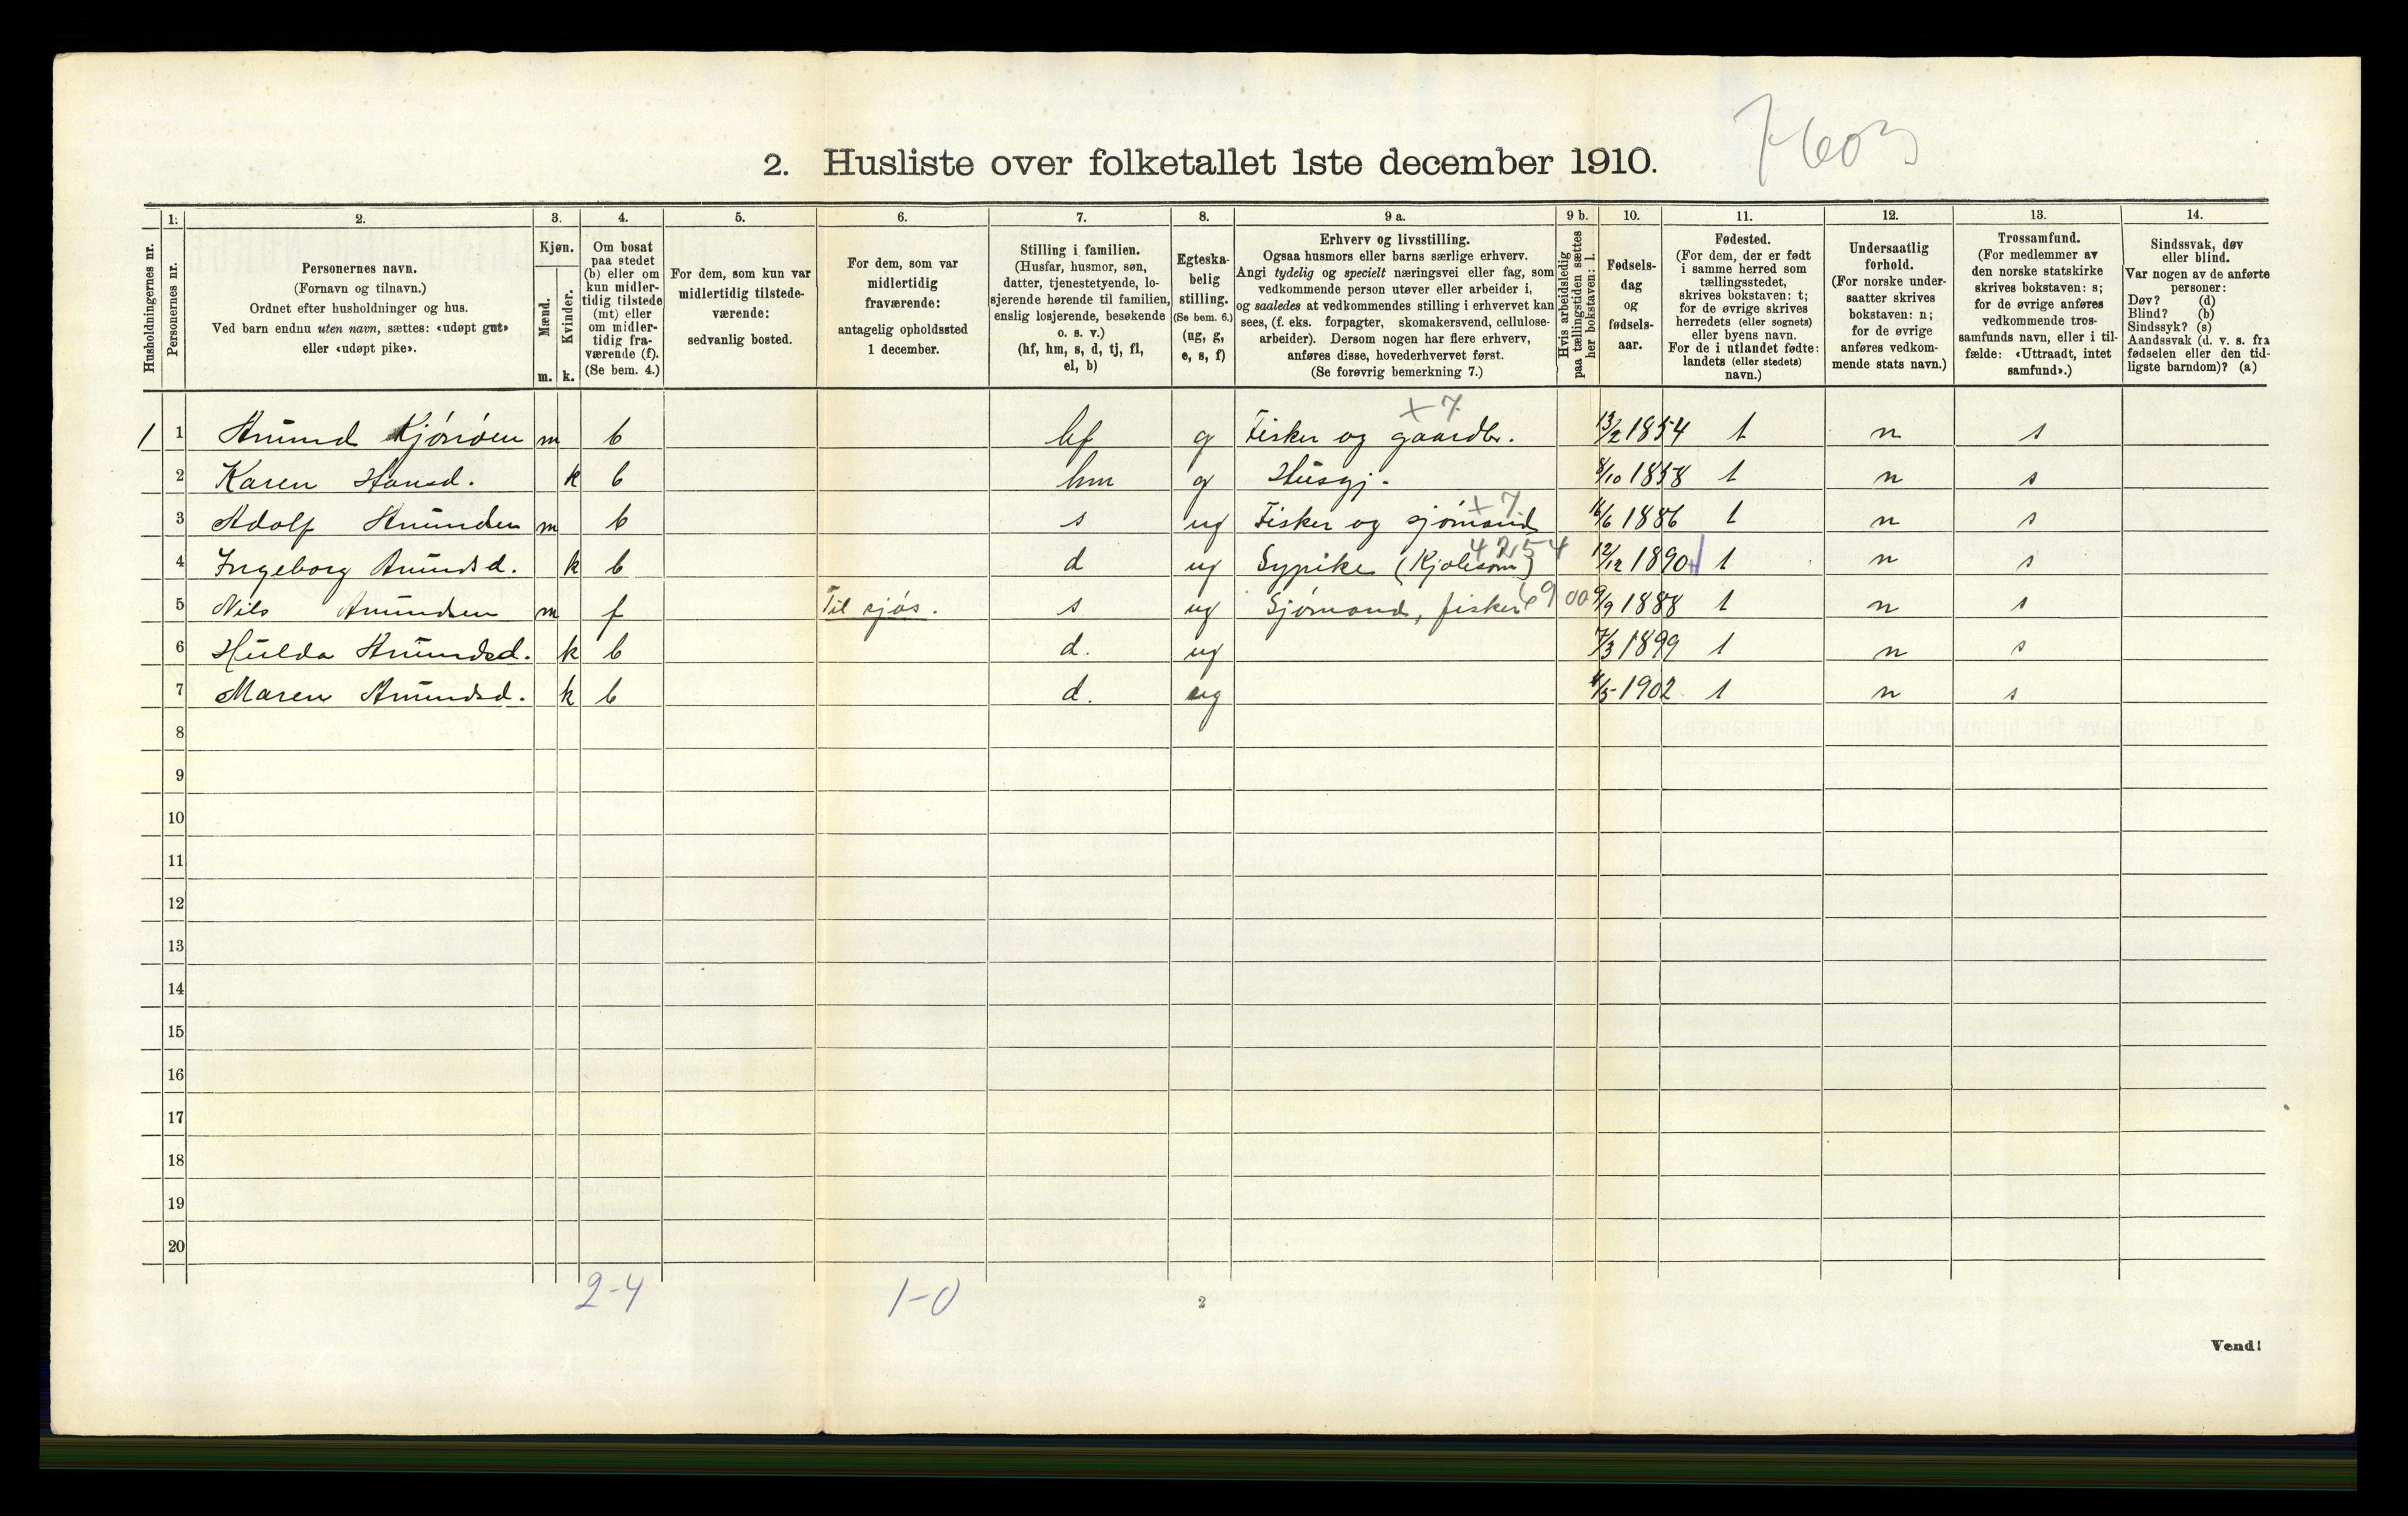 7603
2. Husliste over folketallet 1ste december 1910.
Husholdningernes nr.
1.
Personernes nr.
2.
Personernes navn.
(Fornavn og tilnavn.)
Ordnet efter husholdninger og hus.
Ved barn endnu uten navn, sættes: «udøpt gut»
eller «udøpt pike».
3.
Kjøn.
Mænd.
m.
Kvinder.
k.
4.
Om bosat
paa stedet
(b) eller om
kun midler-
tidig tilstede
(mt) eller
om midler-
tidig fra-
værende (f).
(Se bem. 4.)
5.
For dem, som kun var
midlertidig tilstede-
værende:
sedvanlig bosted.
6.
For dem, som var
midlertidig
fraværende:
antagelig opholdssted
1 december.
7.
Stilling i familien.
(Husfar, husmor, søn,
datter, tjenestetyende, lo-
sjerende hørende til familien,
enslig losjerende, besøkende
o. s. v.)
(hf, hm, s, d, tj, fl,
el, b)
8.
Egteska-
belig
stilling.
(Se bem. 6.)
(ug, g,
e, s, f)
9 a.
Erhverv og livsstilling.
Ogsaa husmors eller barns særlige erhverv.
Angi tydelig og specielt næringsvei eller fag, som
vedkommende person utøver eller arbeider i,
og saaledes at vedkommendes stilling i erhvervet kan
sees, (f. eks. forpagter, skomakersvend, cellulose-
arbeider). Dersom nogen har flere erhverv,
anføres disse, hovederhvervet først.
(Se forøvrig bemerkning 7.)
9 b.
Hvis arbeidsledig
paa tællingstiden sættes
her bokstaven: l.
10.
Fødsels-
dag
og
fødsels-
aar.
11.
Fødested.
(For dem, der er født
i samme herred som
tællingsstedet,
skrives bokstaven: t;
for de øvrige skrives
herredets (eller sognets)
eller byens navn.
For de i utlandet fødte:
landets (eller stedets)
navn.)
12.
Undersaatlig
forhold.
(For norske under-
saatter skrives
bokstaven: n;
for de øvrige
anføres vedkom-
mende stats navn.)
13.
Trossamfund.
(For medlemmer av
den norske statskirke
skrives bokstaven: s;
for de øvrige anføres
vedkommende tros-
samfunds navn, eller i til-
fælde: «Uttraadt, intet
samfund».)
14.
Sindssvak, døv
eller blind.
Var nogen av de anførte
personer:
Døv? (d)
Blind? (b)
Sindssyk? (s)
Aandssvak (d. v. s. fra
fødselen eller den tid-
ligste barndom)? (a)
x 7
1 1 Amund Kjönöen m b hf g Fisker og gaardbr. 13/2 1854 t n s
2 Karen Hansd. k b hm g Husgj. 8/10 1858 t n s
x 7
3 Adolf Amunden m b s ug Fisker og sjömand 16/6 1886 t n s
4254
4 Ingeborg Amundsd. k b d ug Sypike (Kjolesöm) 12/12 1890 t n s
5 Nils Amundsen m f Til sjös. s ug Sjömand, fisker 6900 9/9 1888 t n s
6 Hulda Amundsd. k b d. ug 7/3 1899 t n s
7 Maren Amundsd. k b d. ug 4/5 1902 t n s
8
9
10
11
12
13
14
15
16
17
18
19
20
2-4
1-0
2
Vend!